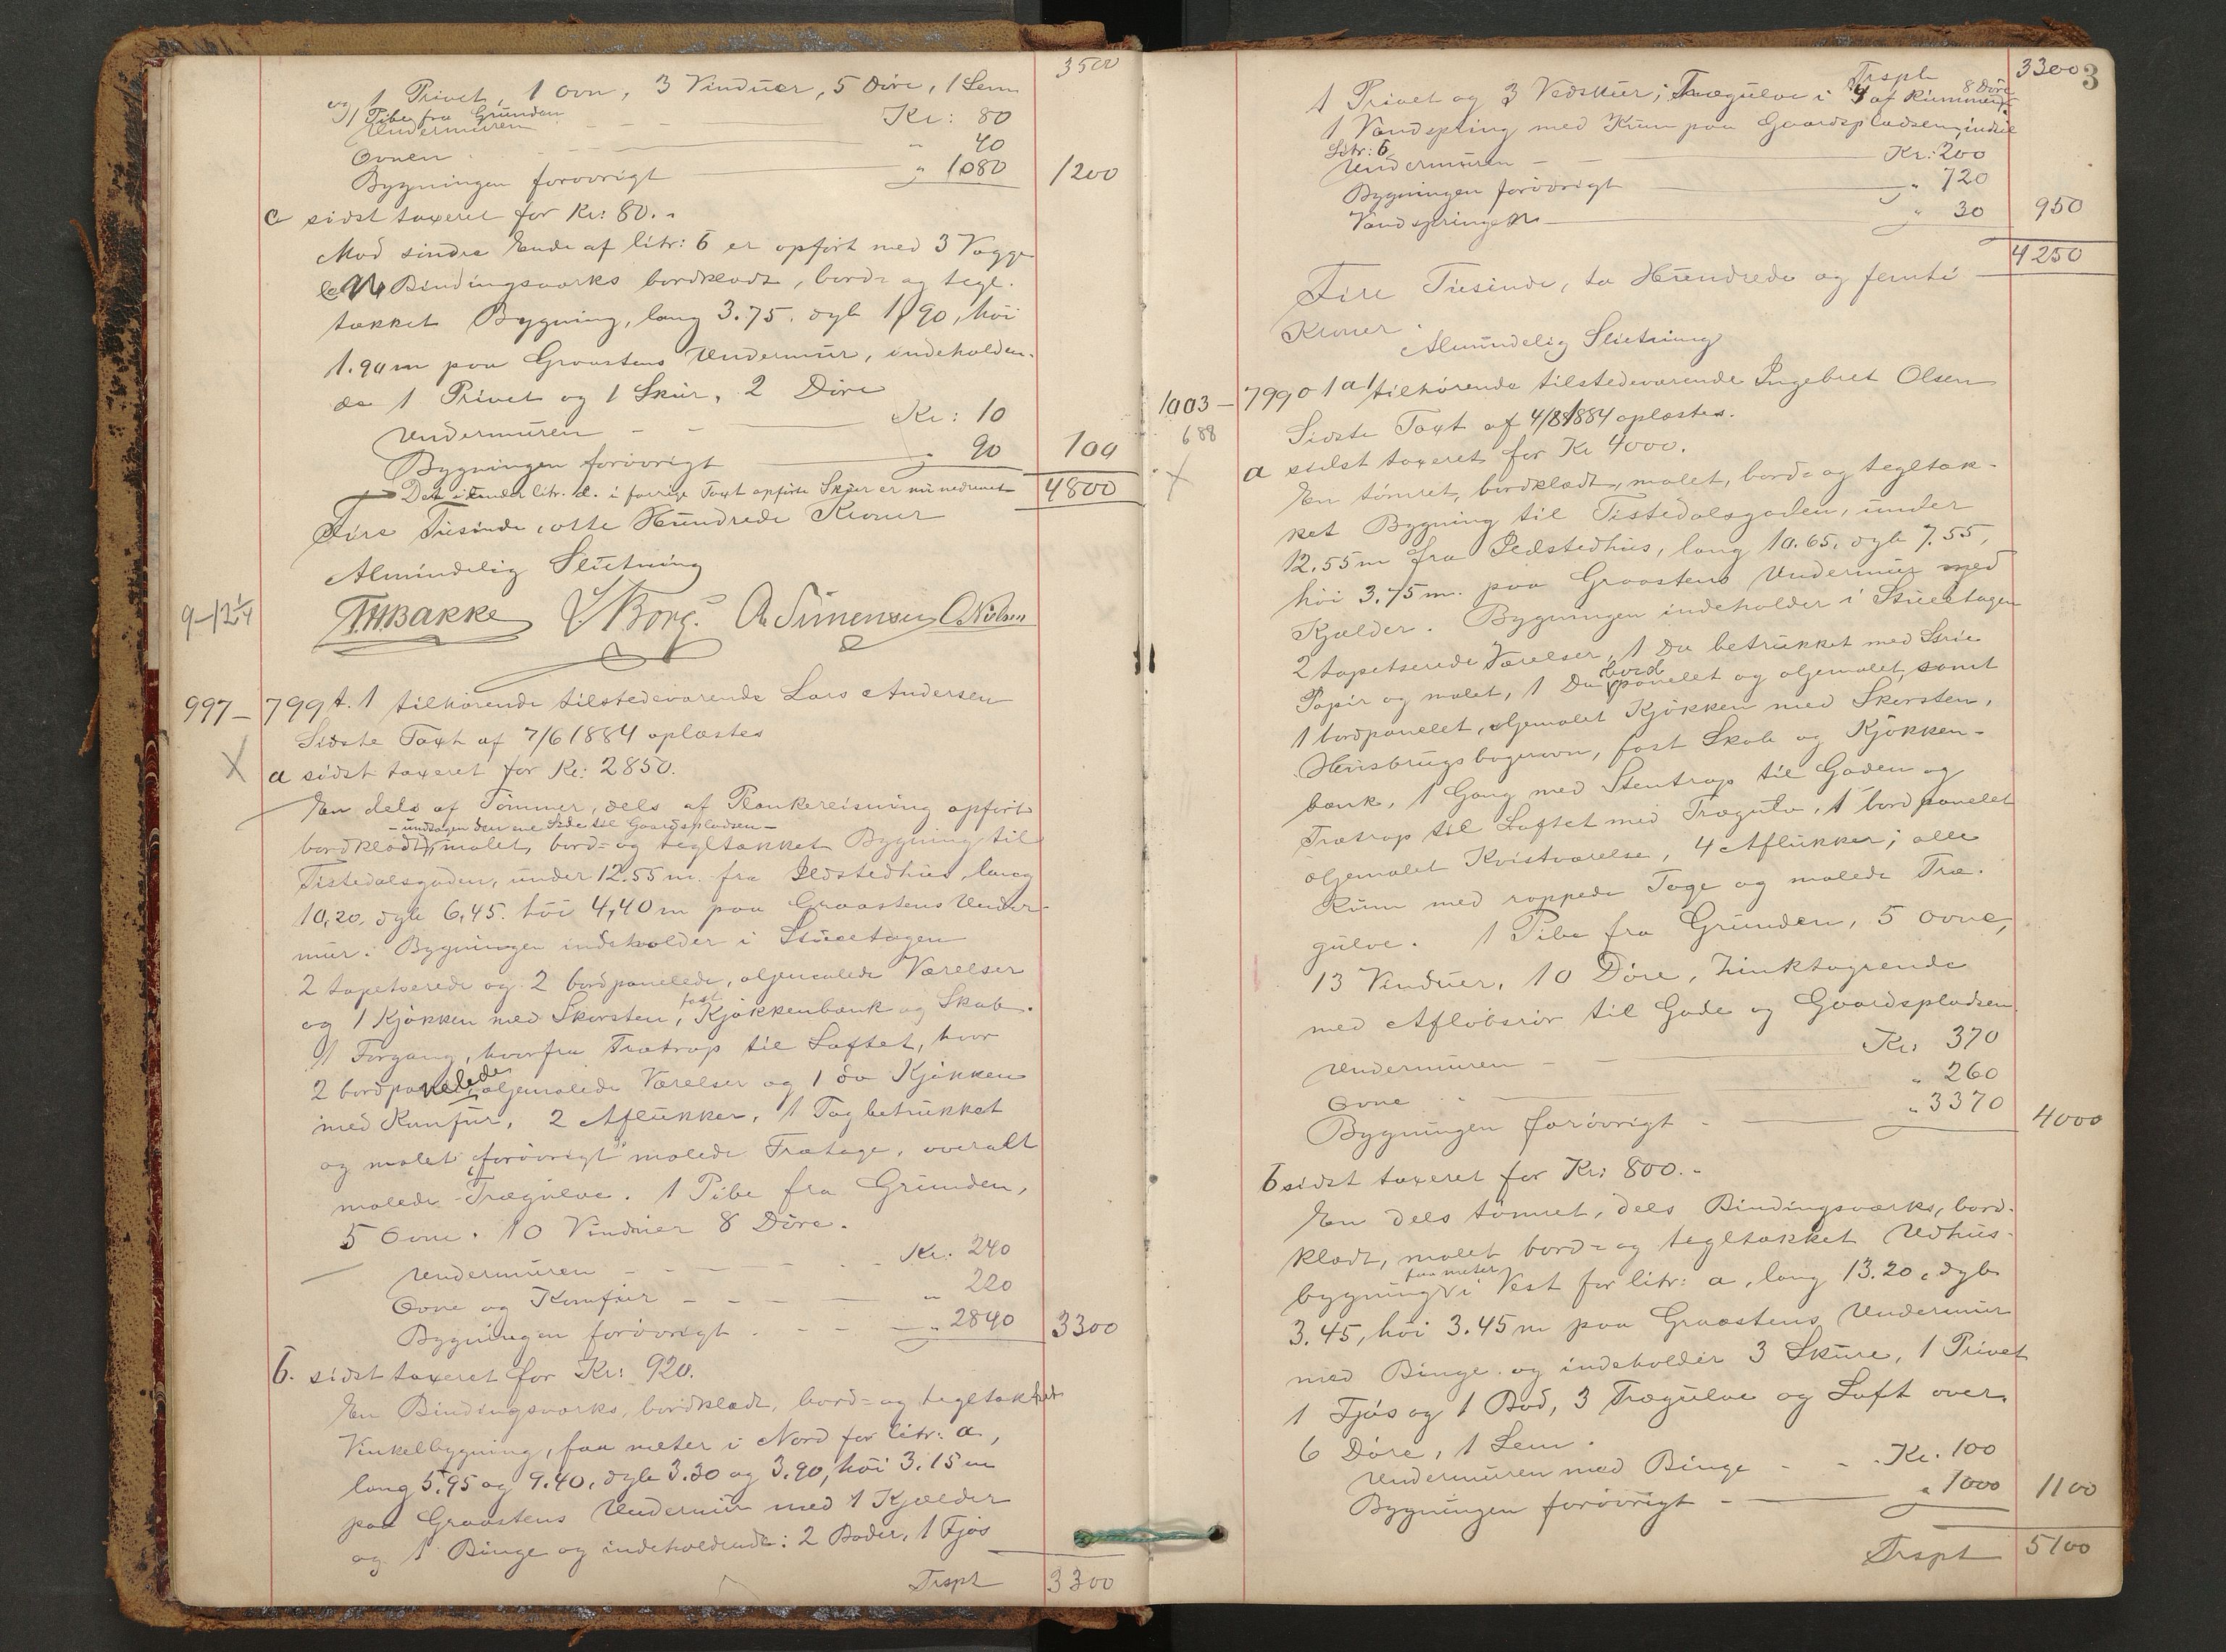 3500
1 Privet, 1 Ovn, 3 Vinduer, 5 Döre, 1 Lem
og 1 Pibe fra Grunden
Undermuren Kr: 80
Ovnen " 40
Bygningen forövrigt " 1080 1200
c sidst taxeret for Kr: 80.-
Mod söndre Ende af litr: b er opfört med 3 Vægge
en Bindingsværks bordklædt, bord- og tegl-
tækket Bygning, lang 3.75. dyb 1,90, höi
1.90 m paa Graastens Undermur, indeholden-
de 1 Privet og 1 Skur, 2 Döre
Undermuren Kr: 10
Bygningen forövrigt " 90 100
Det under litr. d. i forrige Taxt opförte Skur er nu nedrevet 4800
Fire Tusinde, otte Hundrede Kroner
Almindelig Slutning
9-12 1/4
T.H. Bakke Borg. A Simensen O. Nilsen
997- 799 t. 1 tilhörende tilstedeværende Lars Andersen
Sidste Taxt af 7/6 1884 oplæstes
X
a sidst taxeret for Kr: 2850.
En dels af Tömmer, dels af Plankereisning opfört
- undtagen den ene Side til Gaardspladsen -
bordklædt, malet, bord- og tegltækket Bygning til
Tistedalsgaden, under 12.55 m. fra Ildstedhus, lang
10,20, dyb 6,45. höi 4,40 m paa Graastens Under-
mur. Bygningen indeholder i Stueetagen
2 tapetserede og 2 bordpanelede, oljemalede Værelser
og 1 Kjökken med Skorsten, fast Kjökkenbænk og Skab.
1 Forgang, hvorfra Trætrap til Loftet, hvor
2 bordpanelede, oljemalede Værelser og 1 do Kjökken
med Komfur, 2 Aflukker, 1 Tag betrukket
og malet, forövrigt malede Trætage, overalt
malede Trægulve. 1 Pibe fra Grunden,
5 Ovne. 10 Vinduer 8 Döre.
Undermuren Kr. 240
Ovne og Komfur " 220
Bygningen forövrigt " 2840 3300
b. sidst taxeret for Kr: 920.
En Bindingsværks, bordklædt, bord- og tegltækket
Vinkelbygning, faa meter i Nord for litr: a,
lang 5,95 og 9.40, dyb 3.30 og 3.90, höi 3.15 m
paa Graastens Undermur med 1 Kjælder
og 1 Binge og indeholdende: 2 Boder, 1 Fjös
Trspt 3300
3
Trspt 3300
1 Privet og 3 Vedskur; Trægulve i 4 af Rummene 8 Döre
1 Vandspring med Kum paa Gaardspladsen, indtil
Litr: b
Undermuren Kr: 200
Bygningen forövrigt " 720
Vandspringen " 30 950
4250
Fire Tusinde, to Hundrede og femti
Kroner.
Almindelig Slutning
1003- 799 o 1 a 1 tilhörende tilstedeværende Ingebret Olsen
688
Sidste Taxt af 4/8 1884 oplæstes.
X
a sidst taxeret for Kr 4000.
En tömret, bordklædt, malet, bord- og tegltæk-
ket Bygning til Tistedalsgaden, under
12.55 m fra Ildstedhus, lang 10.65, dyb 7.55,
höi 3.75 m. paa Graastens Undermur med
Kjælder. Bygningen indeholder i Stueetagen
2 tapetserede Værelser, 1 Do betrukket med Strie
Papir og malet, 1 Do bordpanelet og oljemalet, samt
1 bordpanelet, oljemalet Kjökken med Skorsten,
Husbrugsbagerovn, fast Skab og Kjökken-
bænk, 1 Gang med Stentrap til Gaden og
Trætrap til Loftet med Trægulv, 1 bordpanelet
oljemalet Kvistværelse, 4 Aflukker; alle
Rum med rappede Tage og malede Træ-
gulve. 1 Pibe fra Grunden, 5 Ovne,
13 Vinduer, 10 Döre, Zinktagrende
med Aflöbsrör til Gade og Gaardspladsen
Undermuren Kr: 370
Ovne " 260
Bygningen forövrigt " 3370 4000
b sidst taxeret for Kr: 800.-
En dels tömret, dels Bindingsværks, bord-
klædt, malet bord- og tegltækket Udhus-
bygning faa meter i Vest for litr: a, lang 13.20, dyb
3.45, höi 3.45 m paa Graastens Undermur
med Binge og indeholder 3 Skure, 1 Privet
1 Fjös og 1 Bod, 3 Trægulve og Loft over.
6 Döre, 1 Lem.
Undermuren med Binge Kr. 100
Bygningen forövrigt " 1000 1100
Trspt 5100